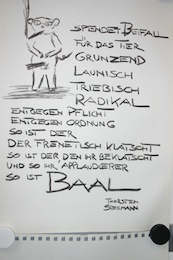 SPENDET BEIFALL
FÜR DAS TIER
GRUNZEND
LAUNISCH
TRIEBISCH
RADIKAL
ENTGEGEN PFLICHT
ENTGEGEN ORDNUNG
SO IST DER
DER FRENETISCH KLATSCHT
SO IST DER DEN IHR BEKLATSCHT
UND SO IHR APPLAUDIERER
SO IST BAAL
THORSTEN